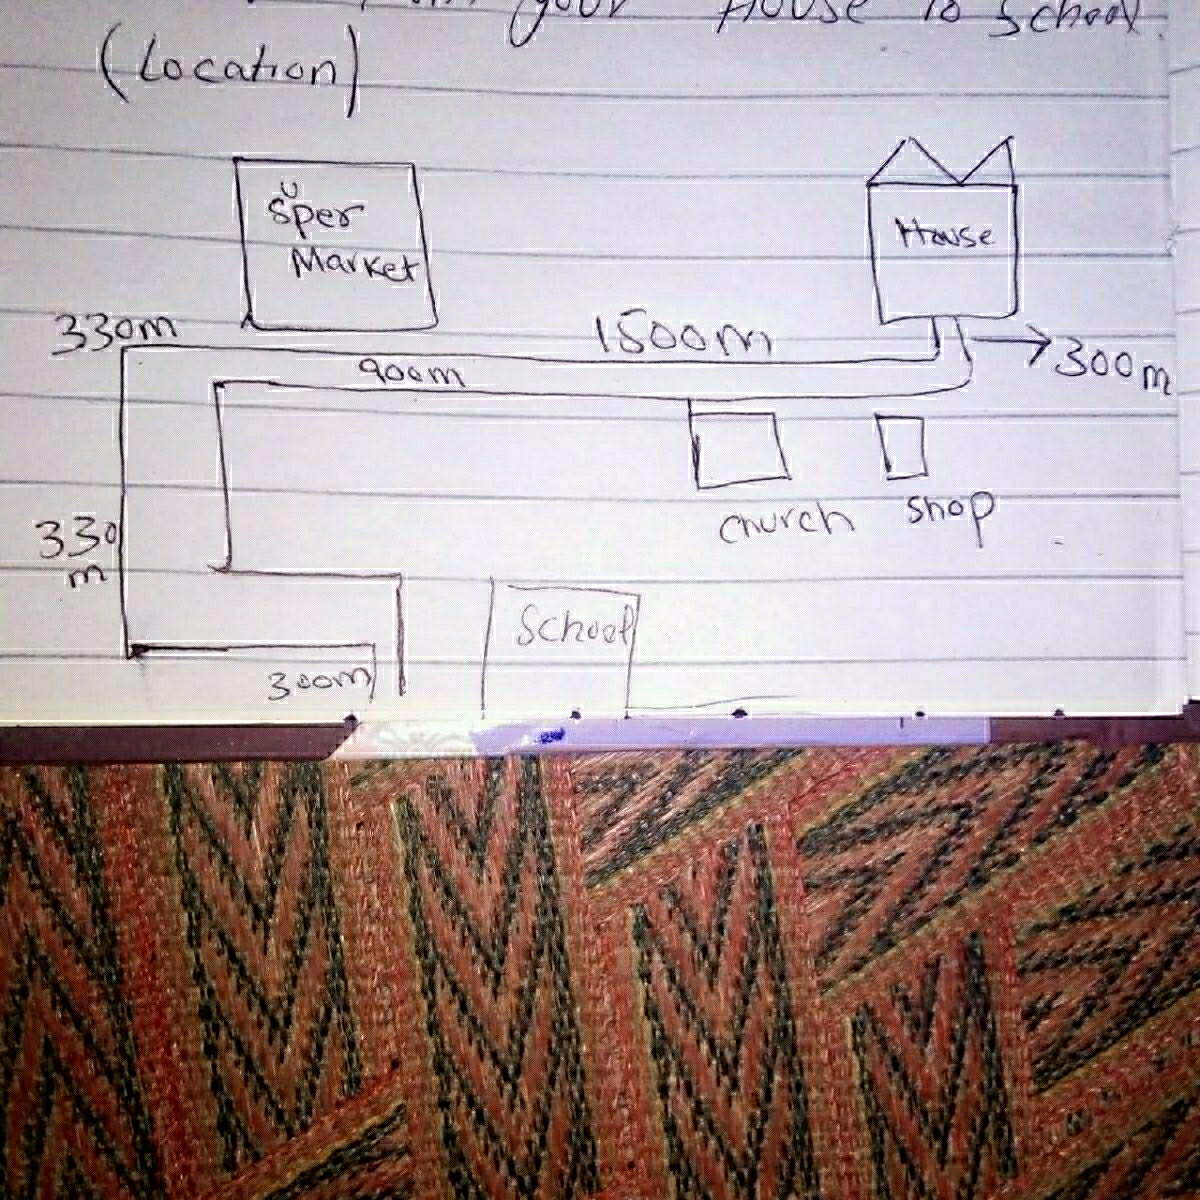 your House to School.
(Location)
Super
Market
House
330m
1500m
300m
900m
330
m
church
shop
School
300m